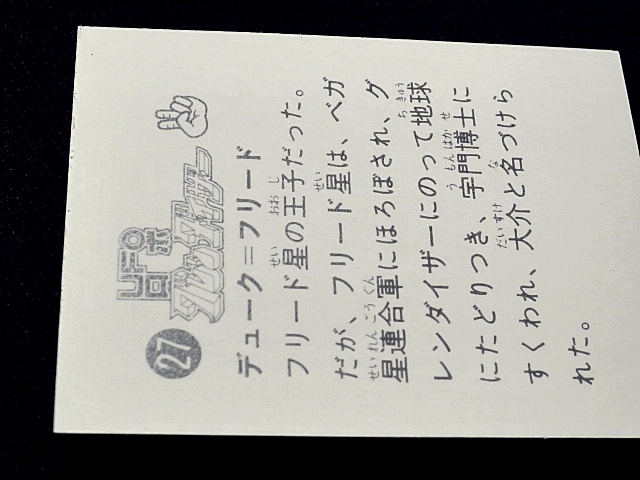 27
UFOロボ
グレンダイザー
デューク＝フリード
フリード星の王子だった。
だが、フリード星は、ベガ
星連合軍にほろぼされ、グ
レンダイザーにのって地球
にたどりつき、宇門博士に
すくわれ、大介と名づけら
れた。